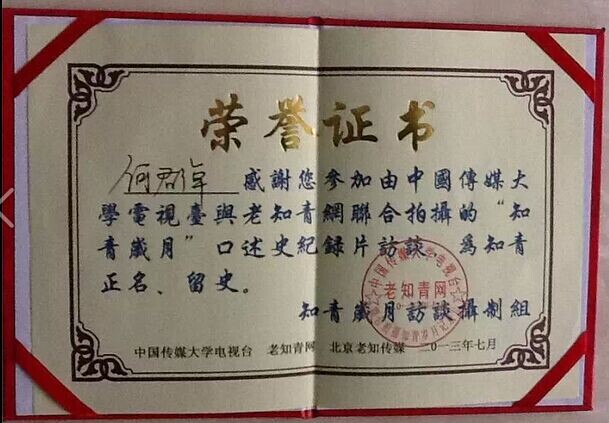 荣誉证书
何君年 感謝您參加由中國傳媒大
學電視臺與老知青網聯合拍攝的“知
青歲月”口述史紀録片訪談，爲知青
正名、留史。
老知青网
知青歲月訪談攝制組
中国传媒大学电视台 老知青网 北京老知传媒 二〇一三年七月